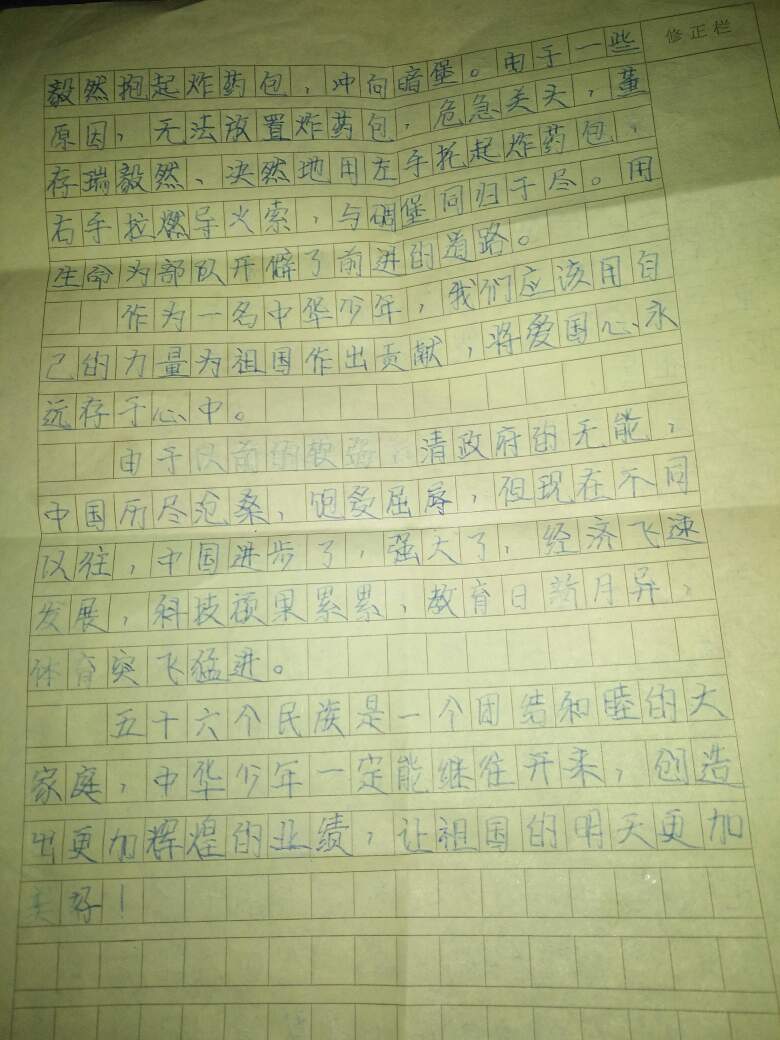 修正栏
毅然抱起炸药包，冲向暗堡。由于一些
原因，无法放置炸药包，危急关头，董
存瑞毅然、决然地用左手托起炸药包，
右手拉燃导火索，与碉堡同归于尽。用
生命为部队开辟了前进的道路。
作为一名中华少年，我们应该用自
己的力量为祖国作出贡献，将爱国心永
远存于心中。
由于以前的软弱清政府的无能，
中国历尽沧桑，饱受屈辱，但现在不同
以往，中国进步了，强大了，经济飞速
发展，科技硕果累累，教育日新月异，
体育突飞猛进。
五十六个民族是一个团结和睦的大
家庭，中华少年一定能继往开来，创造
出更加辉煌的业绩，让祖国的明天更加
美好！